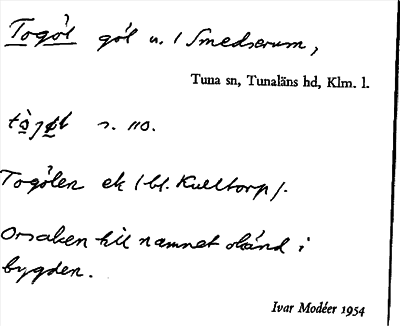 Togöl göl n. / Smedserum,
Tuna sn, Tunaläns hd, Klm. l.
s. 110.
Togölen ek / bl. Kulltorp /.
Orsaken till namnet okänd i
bygden.
Ivar Modéer 1954